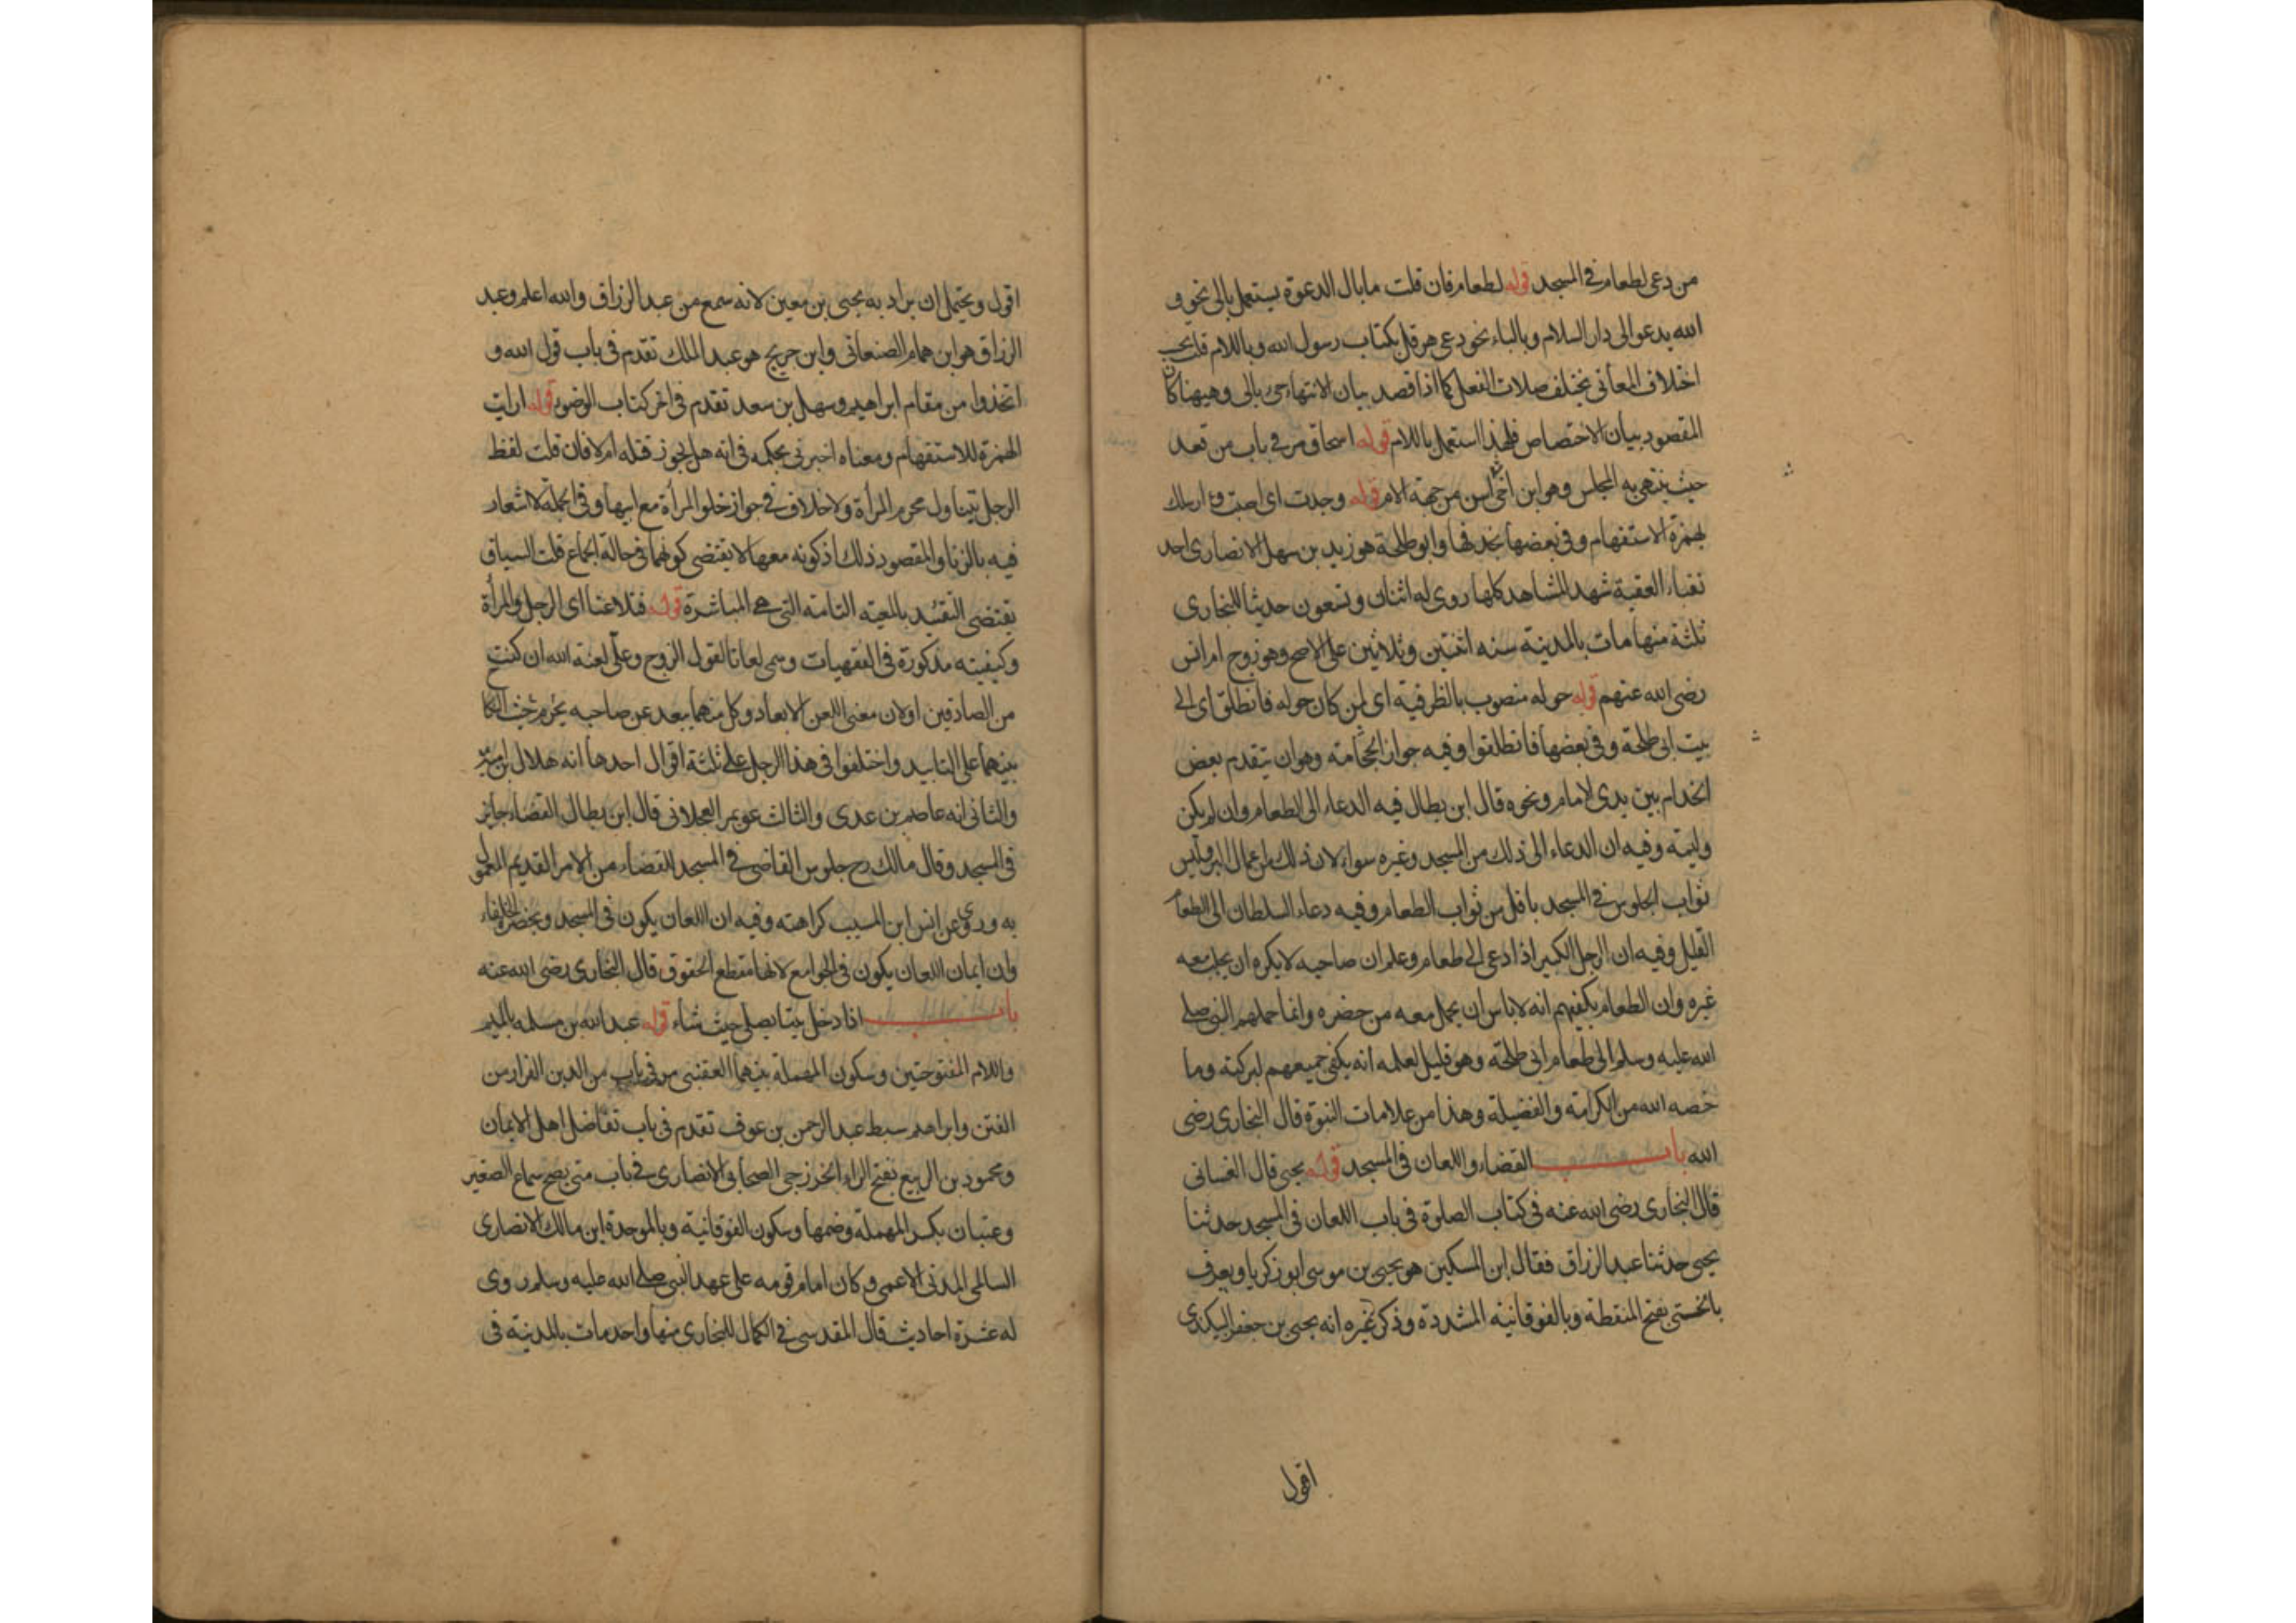 من دعى لطعام في المسجد قوله لطعام فان قلت ما بال الدعوة يستعمل بالى نحو و
الله يدعو الى دار السلام وبالباء نحو دعى هرقل بكتاب رسول الله وباللام قلت بحسب
اختلاف المعانى يختلف صلات الفعل كما اذا قصد بيان الانتهاء جئ بالى وهيهنا كان
المقصود بيان الاختصاص فلهذا استعمل باللام قوله اسحاق مر في باب من قعد
حيث ينتهى به المجلس وهو ابن اخى انس من جهة الام قوله وجدت اى اصبت و ءارسلك
بهمزة الاستفهام وفى بعضها بحذفها وابو طلحة هو زيد بن سهل الانصارى احد
نقباء العقبة شهد المشاهد كلها روى له اثنان وتسعون حديثا للبخارى
ثلثة منها مات بالمدينة سنه اثنتين وثلاثين على الاصح وهو زوج ام انس
رضى الله عنهم قوله حوله منصوب بالظرفية اى لمن كان حوله فانطلق اى الى
بيت ابى طلحة وفى بعضها فانطلقوا وفيه جواز الحجامة وهو ان يتقدم بعض
الخدام بين يدى الامام ونحوه قال ابن بطال فيه الدعاء الى الطعام وان لم يكن
وليمة وفيه ان الدعاء الى ذلك من المسجد وغيره سواء لان ذلك من اعمال البر وليس
ثواب الجلوس في المسجد باقل من ثواب الطعام وفيه دعاء السلطان الى الطعام
القليل وفيه ان الرجل الكبير اذا دعى الى طعام وعلم ان صاحبه لا يكره ان يجلب معه
غيره وان الطعام يكفيهم انه لا باس ان يحمل معه من حضره وانما حملهم النبى صلى
الله عليه وسلم الى طعام ابى طلحة وهو قليل لعلمه انه يكفى جميعهم لبركته وما
خصه الله من الكرامة والفضيلة وهذا من علامات النبوة قال البخارى رضى
الله باب القضاء واللعان فى المسجد قوله يحيى قال الغسانى
قال البخارى رضى الله عنه فى كتاب الصلوة فى باب اللعان فى المسجد حدثنا
يحيى حدثنا عبد الرزاق فقال ابن السكين هو يحيى بن موسى ابو زكريا ويعرف
بالختى بفتح المنقطة وبالفوقانية المشددة وذكر غيره انه يحيى بن جعفر البيكندى
اقول
اقول ويحتمل ان يراد به يحيى بن معين لانه سمع من عبد الرزاق والله اعلم وعبد
الرزاق هو ابن همام الصنعانى وابن جريج هو عبد الملك تقدم فى باب قول الله و
اتخذوا من مقام ابراهيم وسهل بن سعد تقدم فى اخر كتاب الوضوء قوله ارايت
الهمزة للاستفهام ومعناه اخبرنى بحكمه فى انه هل يجوز قتله ام لا فان قلت لفظ
الرجل يتناول محرم المرأة ولا خلاف في جواز خلو المرأة مع ابيها وفى الجملة لا اشعار
فيه بالزنا والمقصود ذلك اذ كونه معها لا يقتضى كونهما فى حالة الجماع قلت السياق
يقتضى التقييد بالمعية التامة التى هى المباشرة قوله فتلاعنا اى الرجل والمرأة
وكيفيته مذكورة فى الفقهيات وسمى لعانا لقول الزوج وعلى لعنة الله ان كنت
من الصادقين او لان معنى اللعن الابعاد وكل منهما يبعد عن صاحبه يحرم النكا
بينهما على التابيد واختلفوا فى هذا الرجل على ثلثة اقوال احدها انه هلال بن امية
والثانى انه عاصم بن عدى والثالث عويمر العجلانى قال ابن بطال القضاء جايز
فى المسجد وقال مالك رح جلوس القاضى في المسجد للقضاء من الامر القديم المعمول
به وروى عن انس ابن المسيب كراهته وفيه ان اللعان يكون فى المسجد ويحضره الخلفاء
وان ايمان اللعان يكون فى الجوامع لانها مقطع الحقوق قال البخارى رضى الله عنه
باب اذا دخل بيتا يصلى حيث شاء قوله عبد الله بن مسلمه بالميم
واللام المفتوحتين وسكون المهملة بينهما القعنبى مر فى باب من الدين الفرار من
الفتن وابراهيم سبط عبد الرحمن بن عوف تقدم فى باب تفاضل اهل الايمان
ومحمود بن الربيع بفتح الراء الخزرجى الصحابى الانصارى في باب متى يصح سماع الصغير
وعتبان بكسر المهملة وضمها وسكون الفوقانية وبالموحدة ابن مالك الانصارى
السالمى المدنى الاعمى وكان امام قومه على عهد النبى صلى الله عليه وسلم روى
له عشرة احاديث قال المقدسى في الكمال للبخارى منها واحد مات بالمدينة فى